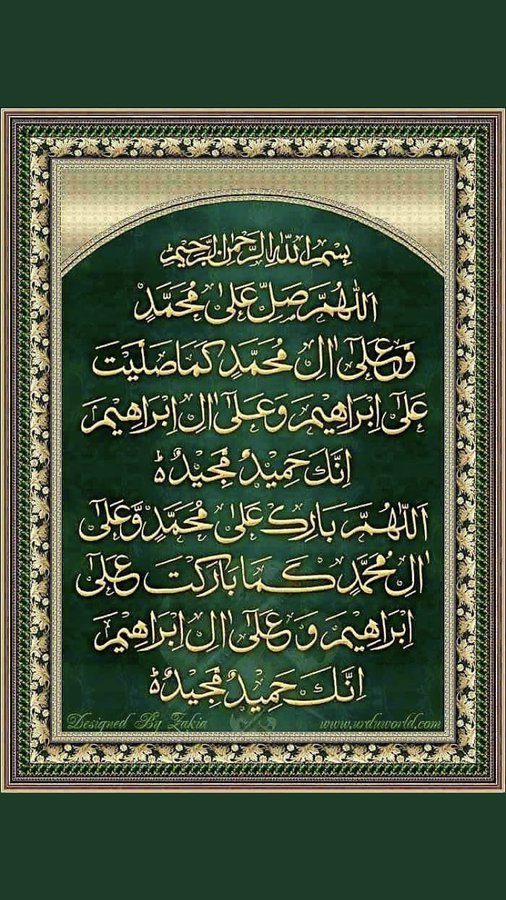 بِسْمِ اللّٰهِ الرَّحْمٰنِ الرَّحِيْمِ
اَللّٰهُمَّ صَلِّ عَلٰى مُحَمَّدٍ
وَّعَلٰٓى اٰلِ مُحَمَّدٍ كَمَا صَلَّيْتَ
عَلٰٓى اِبْرَاهِيْمَ وَعَلٰٓى اٰلِ اِبْرَاهِيْمَ
اِنَّكَ حَمِيْدٌ مَّجِيْدٌ ؕ
اَللّٰهُمَّ بَارِكْ عَلٰى مُحَمَّدٍ وَّعَلٰٓى
اٰلِ مُحَمَّدٍ كَمَا بَارَكْتَ عَلٰٓى
اِبْرَاهِيْمَ وَ عَلٰٓى اٰلِ اِبْرَاهِيْمَ
اِنَّكَ حَمِيْدٌ مَّجِيْدٌ ؕ
Designed By Zakia www.urduworld.com